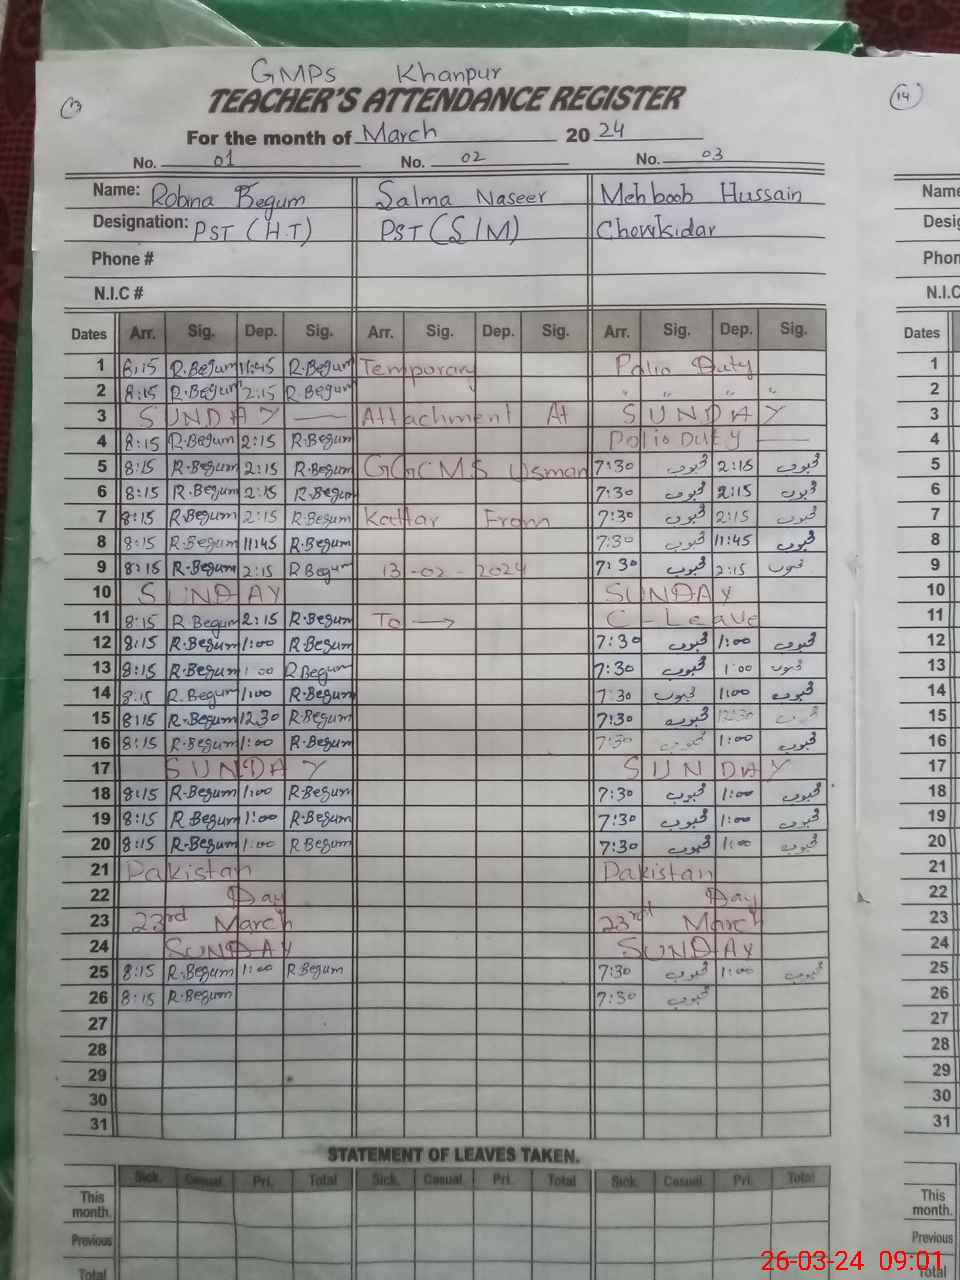 GMPS Khanpur
13
TEACHER'S ATTENDANCE REGISTER
14
For the month of March 2024
No. 01 No. 02 No. 03
Name: Robina Begum Salma Naseer Mehboob Hussain Name
Designation: PST (H.T) PST (S/M) Chowkidar Desig
Phone # Phon
N.I.C # N.I.C
Dates Arr. Sig. Dep. Sig. Arr. Sig. Dep. Sig. Arr. Sig. Dep. Sig. Dates
1 8:15 R.Begum 11:45 R.Begum Temporary Polio Duty 1
2 8:15 R.Begum 2:15 R.Begum " " " " 2
3 SUNDAY — Attachment At SUNDAY 3
4 8:15 R.Begum 2:15 R.Begum Polio Duty — 4
5 8:15 R.Begum 2:15 R.Begum GGCMS Usman 7:30 محبوب 2:15 محبوب 5
6 8:15 R.Begum 2:15 R.Begum 7:30 محبوب 2:15 محبوب 6
7 8:15 R.Begum 2:15 R.Begum Kattar From 7:30 محبوب 2:15 محبوب 7
8 8:15 R.Begum 11:45 R.Begum 7:30 محبوب 11:45 محبوب 8
9 8:15 R.Begum 2:15 R.Begum 13-02-2024 7:30 محبوب 2:15 محبوب 9
10 SUNDAY SUNDAY 10
11 8:15 R.Begum 2:15 R.Begum To → C-Leave 11
12 8:15 R.Begum 1:00 R.Begum 7:30 محبوب 1:00 محبوب 12
13 8:15 R.Begum 1:00 R.Begum 7:30 محبوب 1:00 محبوب 13
14 8:15 R.Begum 1:00 R.Begum 7:30 محبوب 1:00 محبوب 14
15 8:15 R.Begum 12:30 R.Begum 7:30 محبوب 12:30 محبوب 15
16 8:15 R.Begum 1:00 R.Begum 7:30 محبوب 1:00 محبوب 16
17 SUNDAY SUNDAY 17
18 8:15 R.Begum 1:00 R.Begum 7:30 محبوب 1:00 محبوب 18
19 8:15 R.Begum 1:00 R.Begum 7:30 محبوب 1:00 محبوب 19
20 8:15 R.Begum 1:00 R.Begum 7:30 محبوب 1:00 محبوب 20
21 Pakistan Pakistan 21
22 Day Day 22
23 23rd March 23rd March 23
24 SUNDAY SUNDAY 24
25 8:15 R.Begum 1:00 R.Begum 7:30 محبوب 1:00 محبوب 25
26 8:15 R.Begum 7:30 محبوب 26
27 27
28 28
29 29
30 30
31 31
STATEMENT OF LEAVES TAKEN.
Sick. Casual. Pri. Total Sick. Casual. Pri. Total Sick. Casual. Pri. Total
This month. This month.
Previous Previous
Total Total
26-03-24 09:01